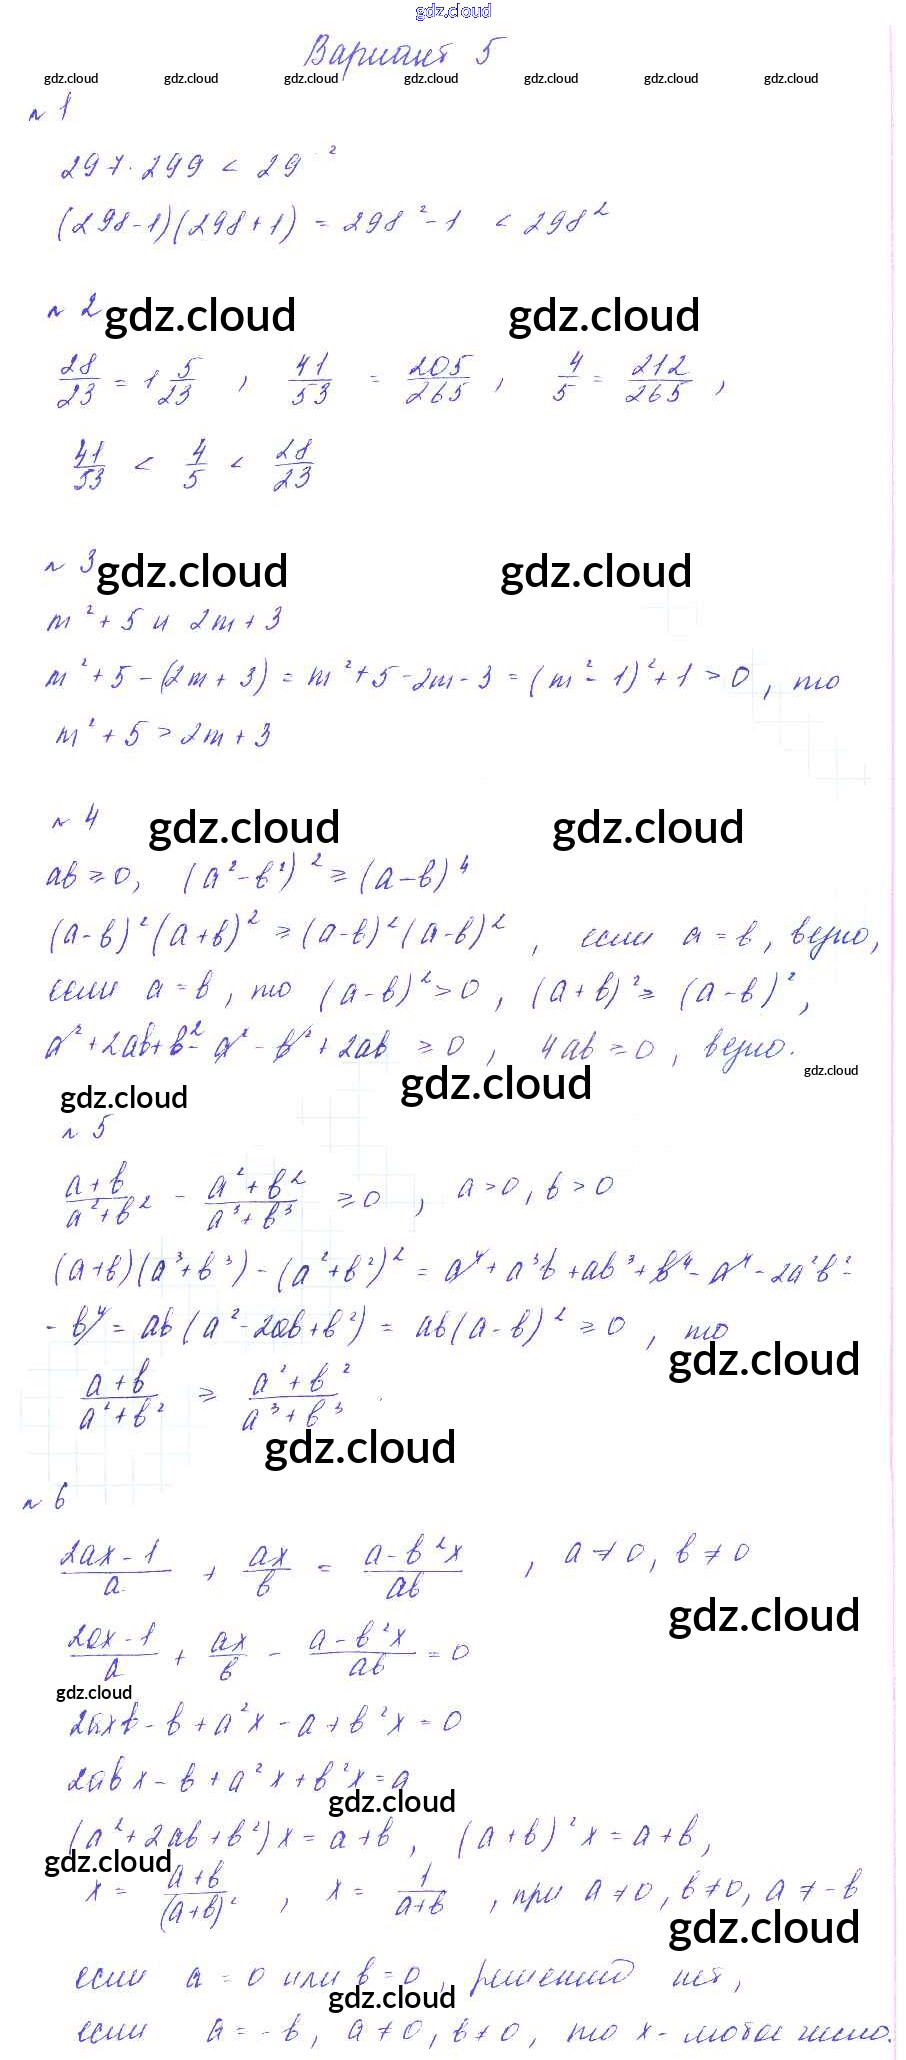 gdz.cloud
Вариант 5
gdz.cloud gdz.cloud gdz.cloud gdz.cloud gdz.cloud gdz.cloud gdz.cloud
№ 1
297·299 < 29 ²
(298-1)(298+1) = 298²-1 < 298²
№ 2
gdz.cloud gdz.cloud
28/23 = 1 5/23 , 41/53 = 205/265 , 4/5 = 212/265 ,
41/53 < 4/5 < 28/23
№ 3
gdz.cloud gdz.cloud
m²+5 и 2m+3
m²+5-(2m+3) = m²+5-2m-3 = (m²-1)²+1 > 0, то
m²+5 > 2m+3
№ 4
gdz.cloud gdz.cloud
ab ≥ 0, (a²-b²)² ≥ (a-b)⁴
(a-b)²(a+b)² ≥ (a-b)²(a-b)² , если a = b, верно,
если a = b, то (a-b)² > 0, (a+b)² ≥ (a-b)²,
a²+2ab+b²-a²-b²+2ab ≥ 0, 4ab ≥ 0, верно.
gdz.cloud gdz.cloud gdz.cloud
№ 5
(a+b)/(a²+b²) - (a²+b²)/(a³+b³) ≥ 0 , a > 0, b > 0
(a+b)(a³+b³)-(a²+b²)² = a⁴+a³b+ab³+b⁴-a⁴-2a²b²-
-b⁴ = ab(a²-2ab+b²) = ab(a-b)² ≥ 0, то
gdz.cloud
(a+b)/(a²+b²) ≥ (a²+b²)/(a³+b³)
gdz.cloud
№ 6
(2ax-1)/a + ax/b = (a-b²x)/ab , a ≠ 0, b ≠ 0
gdz.cloud
(2ax-1)/a + ax/b - (a-b²x)/ab = 0
gdz.cloud
2axb-b+a²x-a+b²x = 0
2abx-b+a²x+b²x = a
gdz.cloud
(a²+2ab+b²)x = a+b, (a+b)²x = a+b,
gdz.cloud
x = (a+b)/(a+b)² , x = 1/(a+b) , при a ≠ 0, b ≠ 0, a ≠ -b
gdz.cloud
если a = 0 или b = 0, решений нет,
gdz.cloud
если a = -b, a ≠ 0, b ≠ 0, то x - любое число.